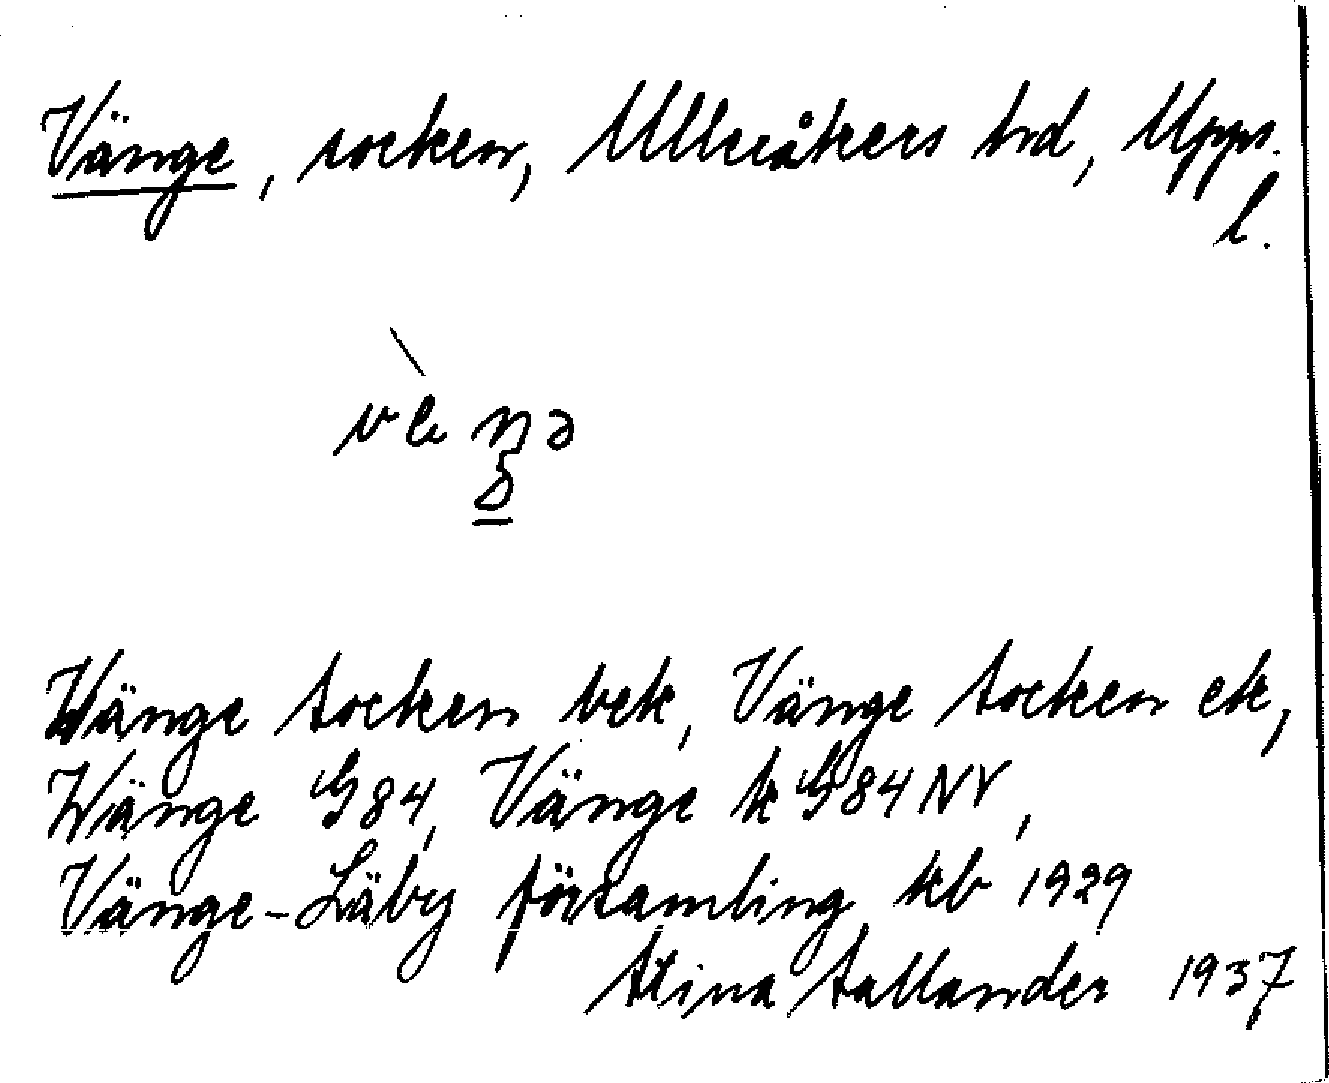 Vänge, socken, Ulleråkers hrd, Upps.
l.
Wänge socken bek, Vänge socken ek,
Wänge G84, Vänge k G84NV,
Vänge-Läby församling kb 1929
Stina Sallander 1937